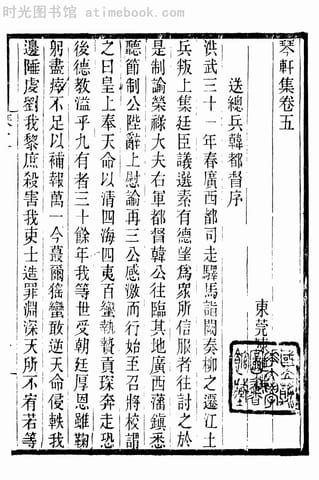 时光图书馆
琴軒集卷五
東莞
送總兵韓都督序
洪武三十一年春廣西都司走驛馬詣闕奏柳之遷江土
兵叛上集廷臣議選素有德望爲眾所信服者往討之於
是制諭榮祿大夫右軍都督韓公往臨其地廣西藩鎮悉
聽節制公陛辭上慰諭再三公感激而行始至召將校謂
之曰皇上奉天命以清四海四夷百蠻執贄貢琛奔走恐
後德教溢乎九有者三十餘年我等世受朝廷厚恩雖鞠
躬盡瘁不足以補報萬一今蕞爾猺蠻敢逆天命侵軼我
邊陲虔劉我黎庶殺害我吏士造罪淵深天所不宥若等